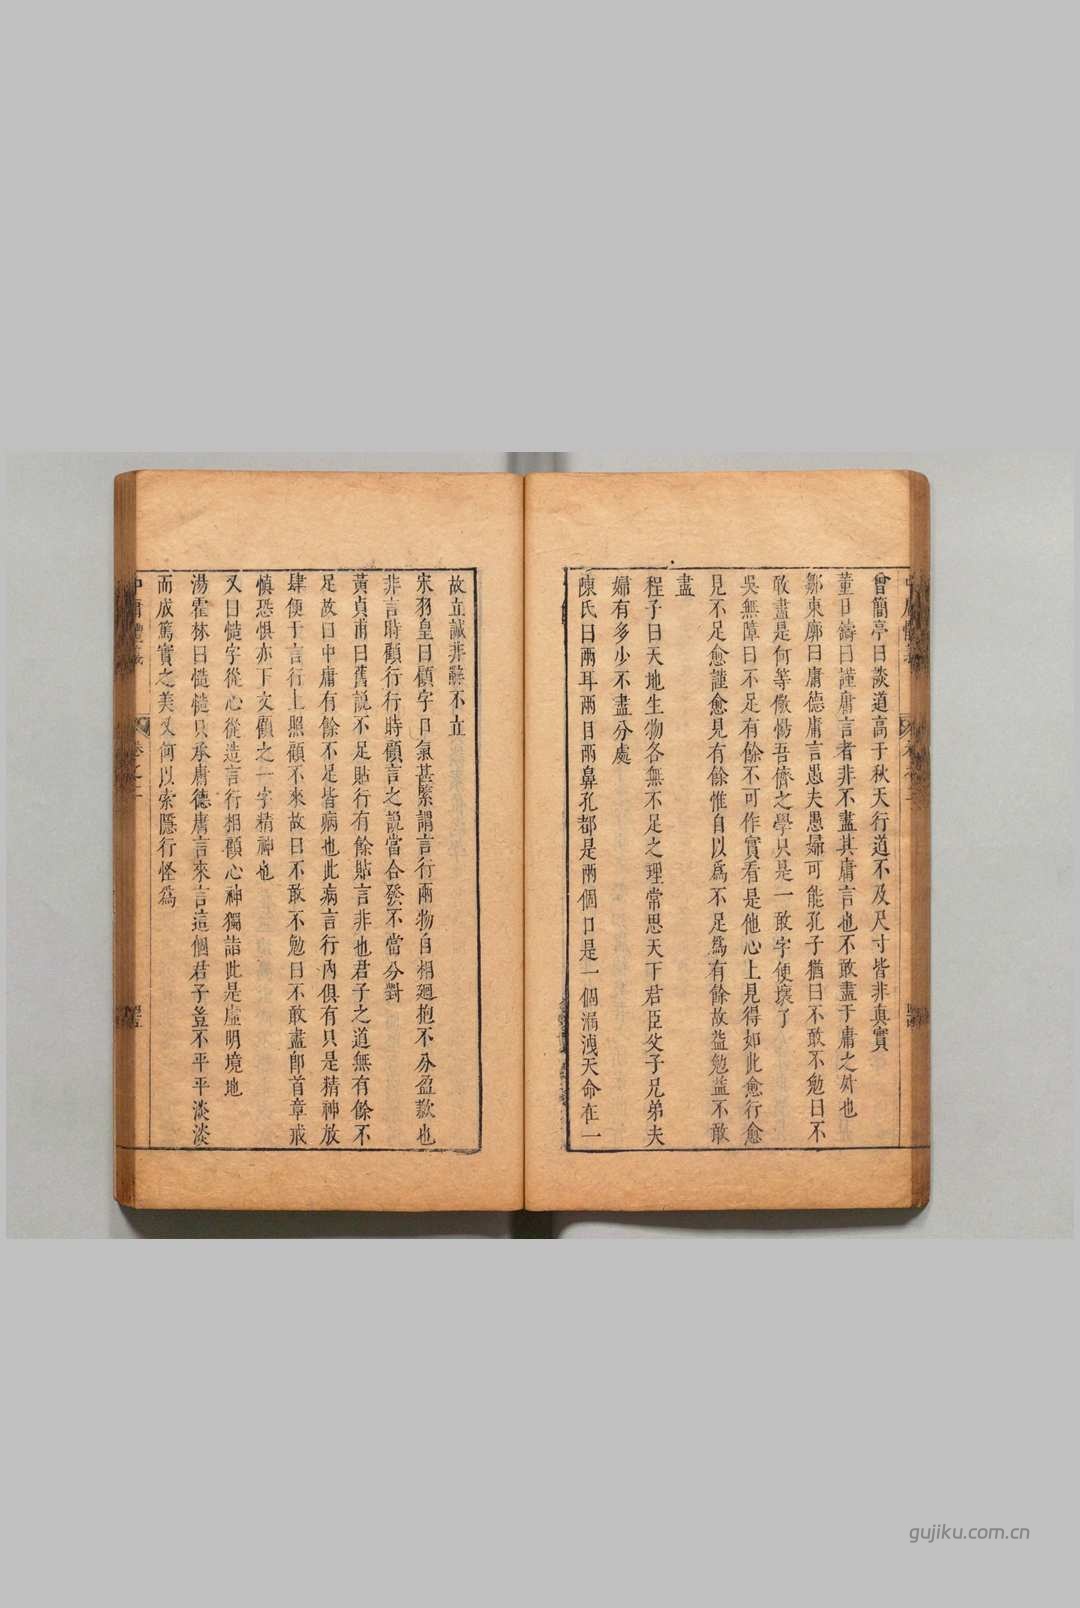 曾簡亭曰談道高于秋天行道不及尺寸皆非真實
董日鑄曰謹庸言者非不盡其庸言也不敢盡于庸之外也
鄒東廓曰庸德庸言愚夫愚婦可能孔子猶曰不敢不勉曰不
敢盡是何等儆惕吾儕之學只是一敢字便壞了
吳無障曰不足有餘不可作實看是他心上見得如此愈行愈
見不足愈謹愈見有餘惟自以爲不足爲有餘故益勉益不敢
盡
程子曰天地生物各無不足之理常思天下君臣父子兄弟夫
婦有多少不盡分處
陳氏曰兩耳兩目兩鼻孔都是兩個口是一個漏洩天命在一
故立誠非辭不立
宋羽皇曰顧字口氣甚緊謂言行兩物自相廻抱不分盈歉也
非言時顧行行時顧言之說當合發不當分對
黃貞甫曰舊說不足貼行有餘貼言非也君子之道無有餘不
足故曰中庸有餘不足皆病也此病言行內俱有只是精神放
肆便于言行上照顧不來故曰不敢不勉曰不敢盡卽首章戒
慎恐惧亦下文顧之一字精神也
又曰慥字從心從造言行相顧心神獨詣此是虛明境地
湯霍林曰慥慥只承庸德庸言來言這個君子豈不平平淡淡
而成篤實之美又何以索隱行怪爲
中庸
卷之二
gujiku.com.cn